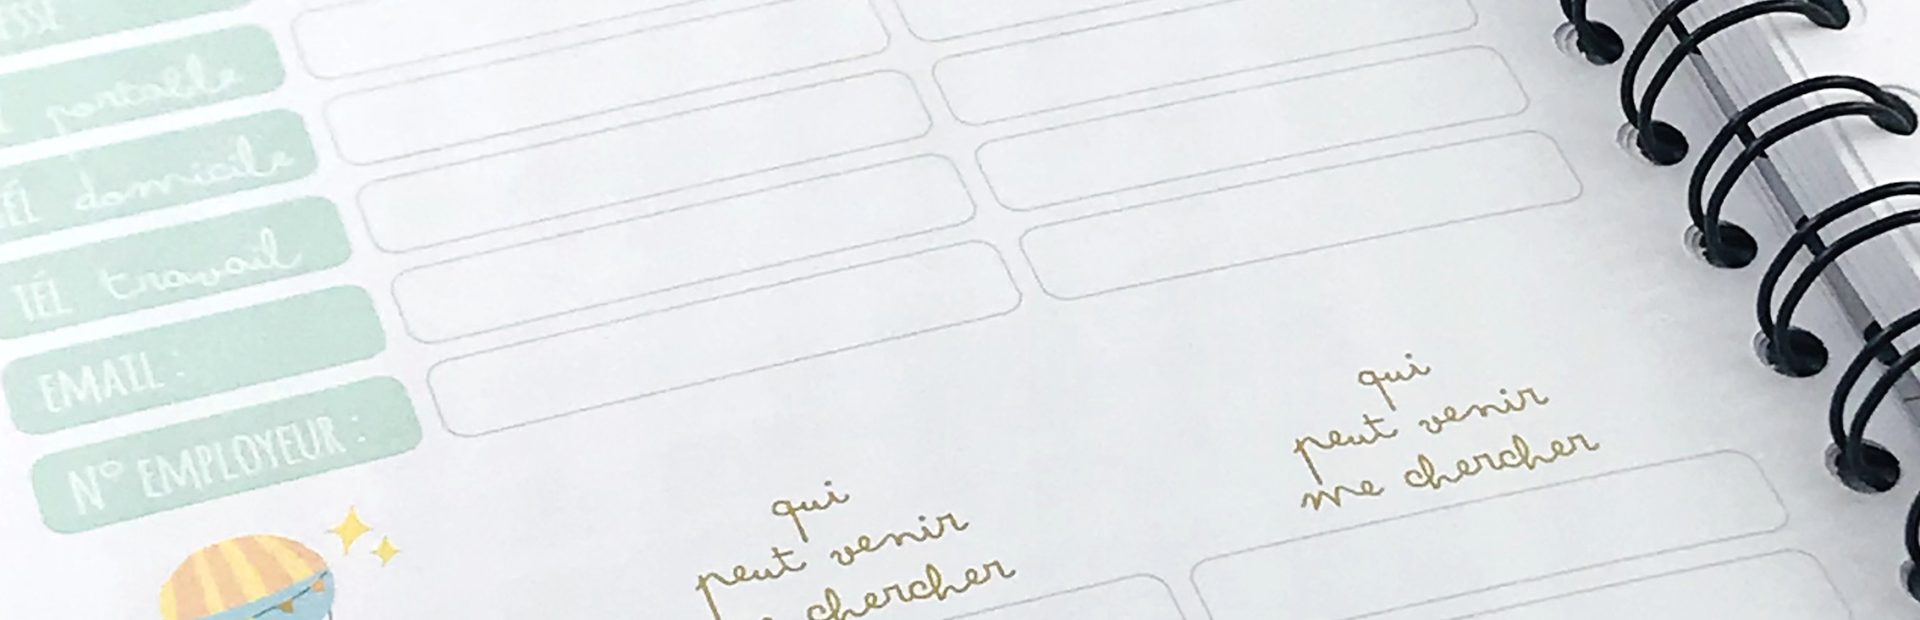 portable
TÉL domicile
TÉL travail
EMAIL :
N° EMPLOYEUR :
qui
peut venir
me chercher
qui
peut venir
chercher